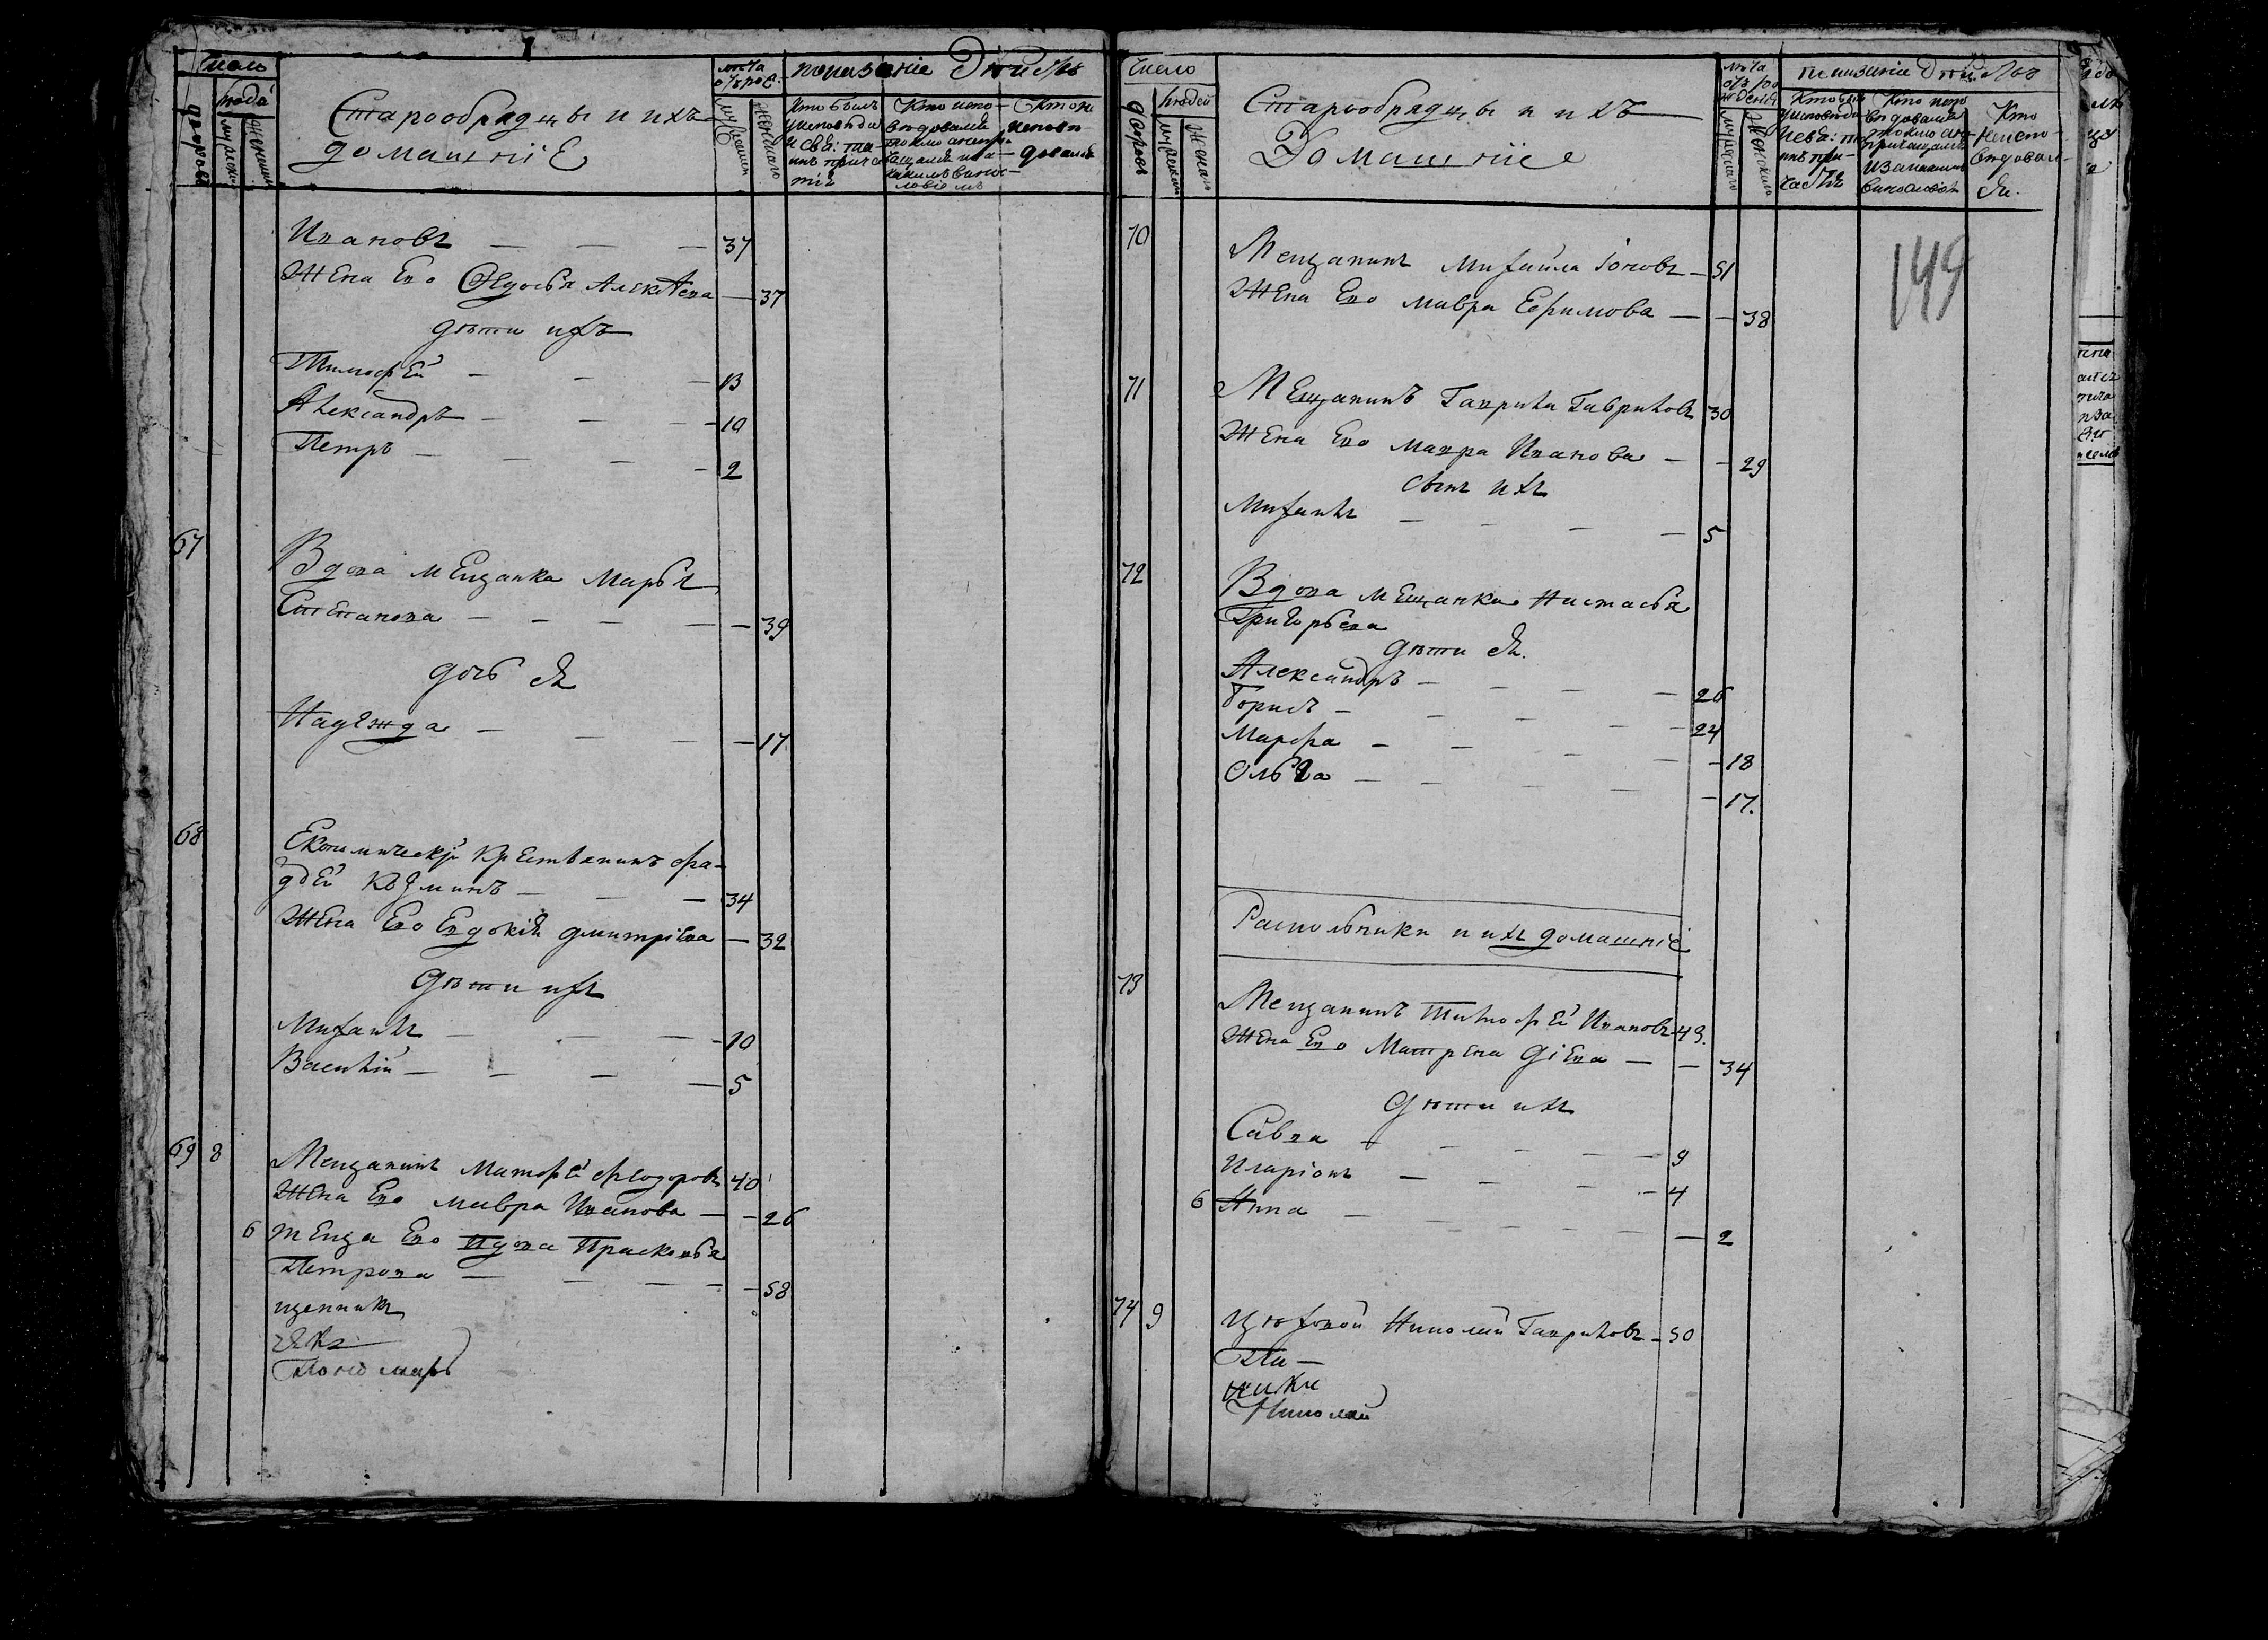 Число
людей
дворовъ
мужеска
женска
Старообрядцы и ихъ
домашніе
лѣта
отъ рож.
мужеска
женскаго
показаніе дѣйствъ
Кто былъ
у исповѣди
и свя: та-
инъ прича
тія
Кто испо-
вѣдовался
токмо а не при-
чащался и за
какимъ винос-
ловіемъ
Кто не
исповѣ
довался
Ивановъ — — — 37
Жена Его Ѳедосья Алексѣева — 37
дѣти ихъ
Тимофей — — — 13
Александръ — — — 10
Петръ — — — 2
67
Вдова мещанка Марья
Степанова — — — — 39
дочь ея
Надежда — — — — 17
68
Економическій Крестьянинъ фа-
дѣй Козминъ — — — 34
Жена Его Евдокія дмитріева — 32
Дѣти ихъ
Михаилъ — — — 10
Василій — — — 5
69 8
Мещанинъ Матфей Ѳеодоровъ 40
Жена Его мавра Иванова — 26
6 тЕща Его вдова Прасковья
Петрова — — — — 58
щенникъ
Пономарь
Число
людей
дворовъ
мужеска
женска
Старообрядцы и ихъ
Домашніе
лѣта
отъ ро
жденія
мужескаго
женскаго
показаніе дѣйствъ
Кто былъ
у исповѣди
и свя: та
инъ при-
частія
Кто испо
вѣдовался
токмо а не
причащался
и за какимъ
винословіемъ
Кто
неиспо-
вѣдовал-
ся.
149
70
Мещанинъ Михайла Іоновъ — 51
Жена Его мавра Ефимова — — 38
71
Мещанинъ Гаврила Гавриловъ 30
Жена Его мавра Иванова — — 29
сынъ ихъ
Михаилъ — — — — 5
72
Вдова мещанка Настасья
Григорьева
дѣти ея.
Александръ — — — — 26
Борисъ — — — — 24
Марфа — — — — 18
Ольга — — — — 17.
Раскольники и ихъ домашніе
73
Мещанинъ Тимофей Ивановъ 43.
Жена Его Матрена Діева — — 34
Дѣти ихъ
Савва — — — — 9
Иларіонъ — — — — 4
6 Анна — — — — 2
74 9
Цеховой Николай Гавриловъ — 50
Николай